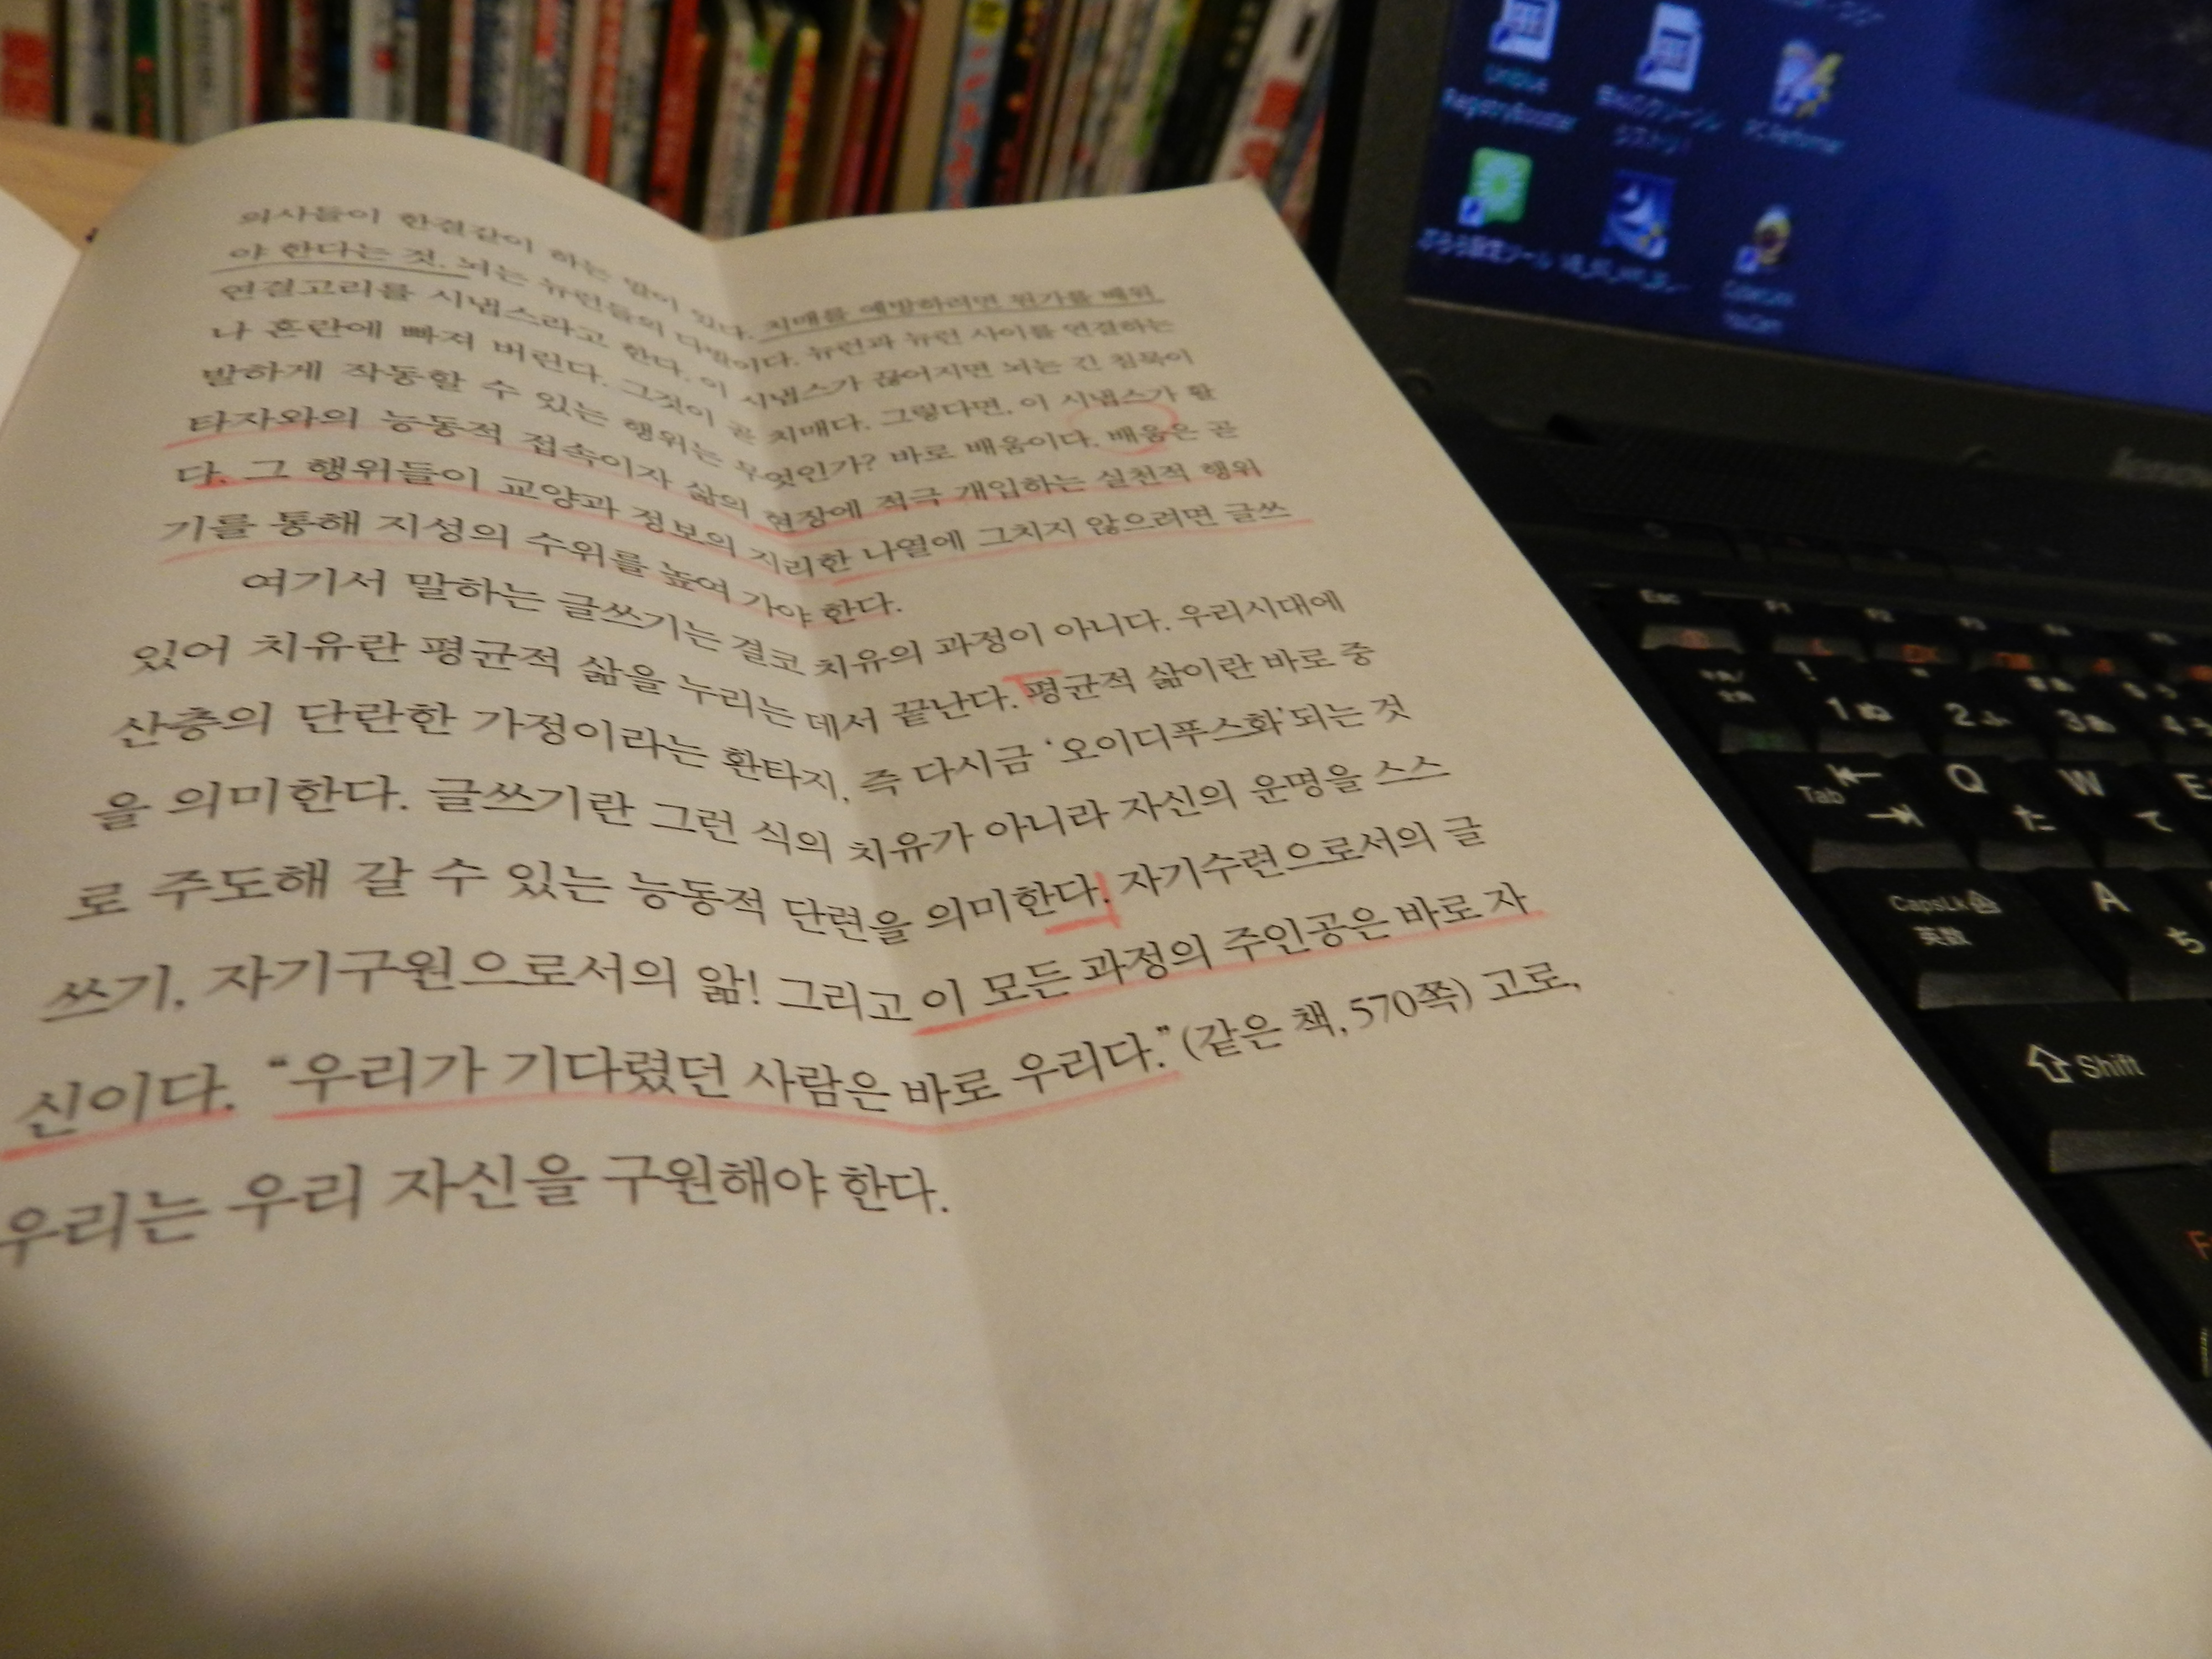 의사들이 한결같이 하는 말이 있다. 치매를 예방하려면 뭔가를 배워
야 한다는 것. 뇌는 뉴런들의 다발이다. 뉴런과 뉴런 사이를 연결하는
연결고리를 시냅스라고 한다. 이 시냅스가 끊어지면 뇌는 긴 침묵이
나 혼란에 빠져 버린다. 그것이 곧 치매다. 그렇다면, 이 시냅스가 활
발하게 작동할 수 있는 행위는 무엇인가? 바로 배움이다. 배움은 곧
타자와의 능동적 접속이자 삶의 현장에 적극 개입하는 실천적 행위
다. 그 행위들이 교양과 정보의 지리한 나열에 그치지 않으려면 글쓰
기를 통해 지성의 수위를 높여 가야 한다.
여기서 말하는 글쓰기는 결코 치유의 과정이 아니다. 우리시대에
있어 치유란 평균적 삶을 누리는 데서 끝난다. 평균적 삶이란 바로 중
산층의 단란한 가정이라는 환타지, 즉 다시금 ‘오이디푸스화’되는 것
을 의미한다. 글쓰기란 그런 식의 치유가 아니라 자신의 운명을 스스
로 주도해 갈 수 있는 능동적 단련을 의미한다. 자기수련으로서의 글
쓰기, 자기구원으로서의 앎! 그리고 이 모든 과정의 주인공은 바로 자
신이다. “우리가 기다렸던 사람은 바로 우리다.”(같은 책, 570쪽) 고로,
우리는 우리 자신을 구원해야 한다.
Uniblue
RegistryBooster
PC Reformer
CyberLink
YouCam
lenovo
Esc F1 F2 F3
! "
1 ぬ 2 ふ 3 あ 4
Tab Q た W て E
CapsLk 英数 A ち
Shift